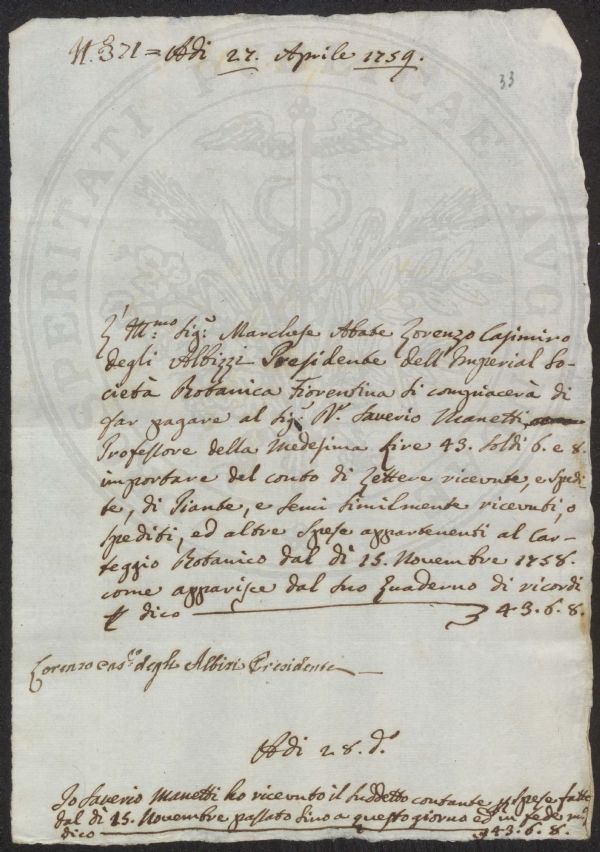 N.º 371 = Adì 27. Aprile 1759.
33
L'Ill.mo Sig.r Marchese Abate Lorenzo Casimiro
degli Albizzi Presidente dell'Imperial So-
cietà Botanica Fiorentina si compiacerà di
far pagare al Sig.r D.r Saverio Manetti
Professore della Medesima Lire 43. soldi 6. e 8.
importare del conto di Lettere ricevute, e spedi-
te, di Piante, e semi similmente ricevuti, o
spediti, ed altre spese appartenenti al Car-
teggio Botanico dal dì 15. Novembre 1758.
come apparisce dal suo Quaderno di ricordi
dico 43.6.8.
Lorenzo Cas.o degli Albizi Presidente
Adì 28. d.o
Io Saverio Manetti ho ricevuto il suddetto contante spese fatte
dal dì 15. Novembre passato sino a questo giorno ed in fede
dico 43.6.8.
SPERITATI PUBLICAE AUG